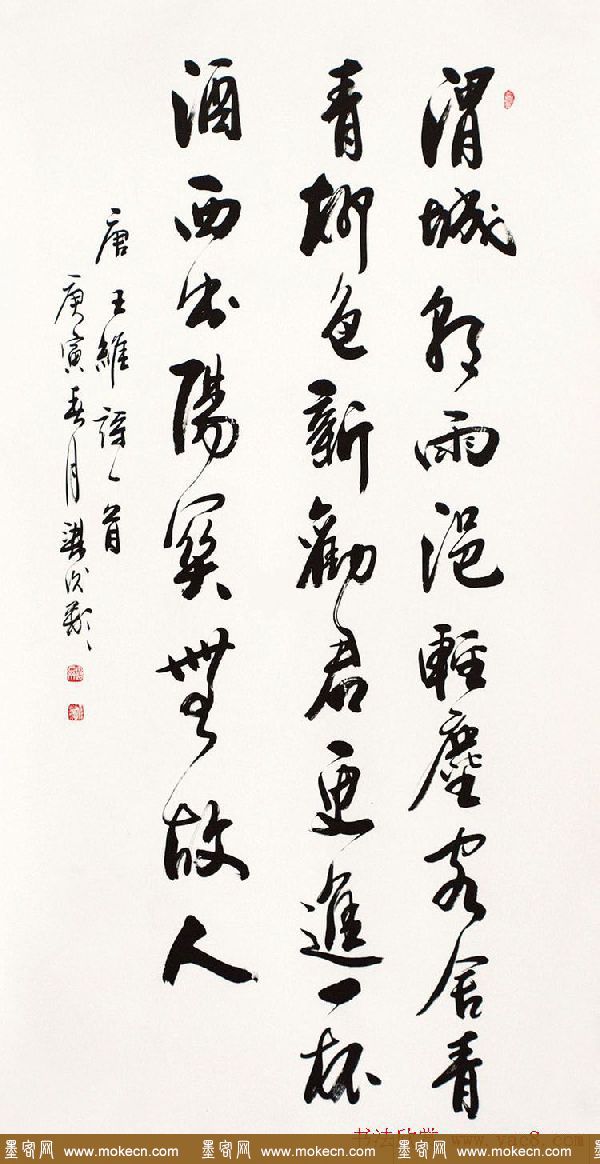 渭城朝雨浥輕塵客舍青
青柳色新勸君更進一杯
酒西出陽關無故人
唐王維詩一首
庚寅春月
书法欣赏 www.yac8.com
墨客网 www.mokecn.com 墨客网 www.mokecn.com 墨客网 www.mokecn.com